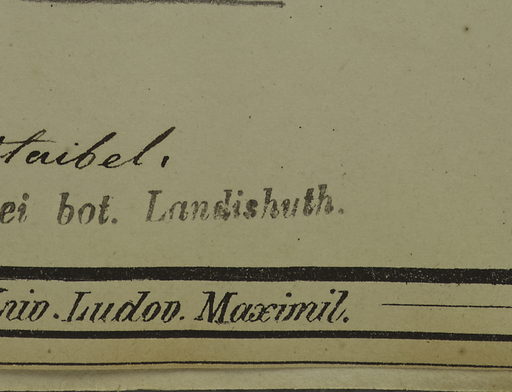 taibel.
ei bot. Landishuth.
niv. Ludov. Maximil.